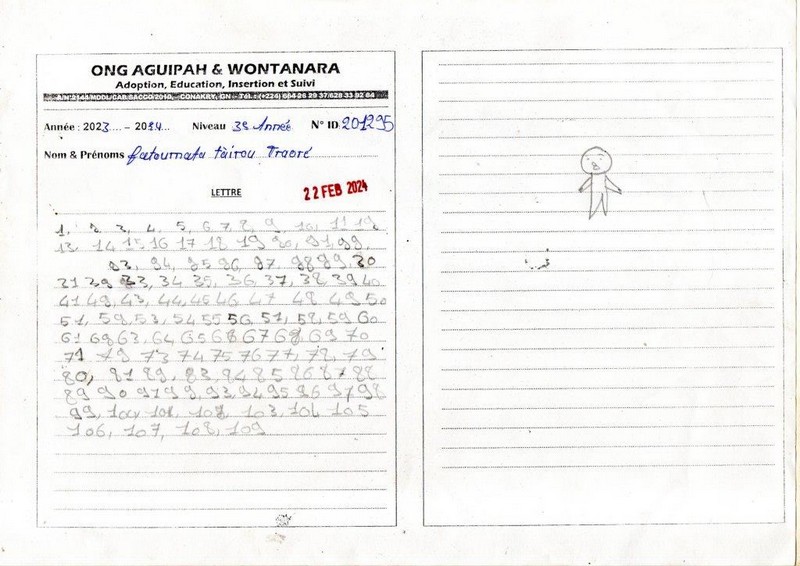 ONG AGUIPAH & WONTANARA
Adoption, Education, Insertion et Suivi
Année : 2023.... – 2024... Niveau 3è Année N° ID 201295
Nom & Prénoms fatoumata tàirou Traoré
LETTRE
22 FEB 2024
1, 2 3, 4, 5, 6 7 8, 9, 10, 11 12
13. 14 15 16 17 18 19 20, 21, 22,
23, 24, 25 26, 27, 28 29, 30
31 32 33, 34 35, 36, 37, 38, 39 40
41 42, 43, 44, 45 46 47 48 49 50
51, 52, 53, 54 55 56, 57, 58, 59 60
61 62 63, 64 65 66 67 68 69 70
71 72 73 74 75 76 77, 78, 79
80, 81 82, 83, 84 85 86 87 88
89 90 91 92, 93, 94 95 96 97 98
99, 100, 101, 102, 103, 104 105
106, 107, 108, 109